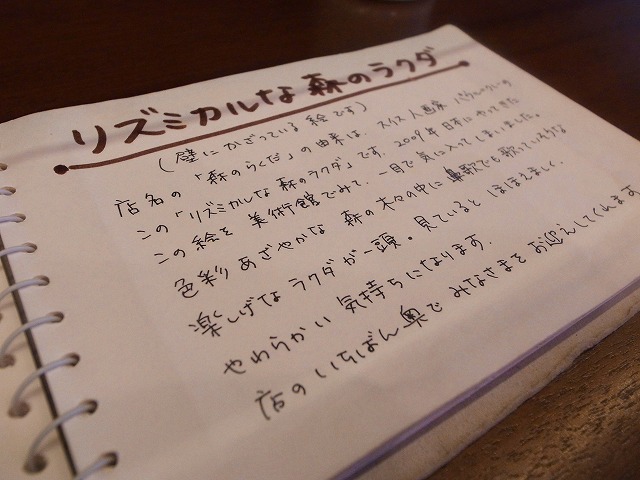 リズミカルな森のラクダ
(壁にかざっている絵です)
店名の「森のらくだ」の由来は、スイス人画家 パウル・クレーの
この「リズミカルな森のラクダ」です。2009年日本にやってきた
この絵を美術館でみて、一目で気に入ってしまいました。
色彩あざやかな森の木々の中に鼻歌でも歌っていそうな
楽しげなラクダが一頭。見ているとほほえましく、
やわらかい気持ちになります。
店のいちばん奥でみなさまをお迎えしてくれます